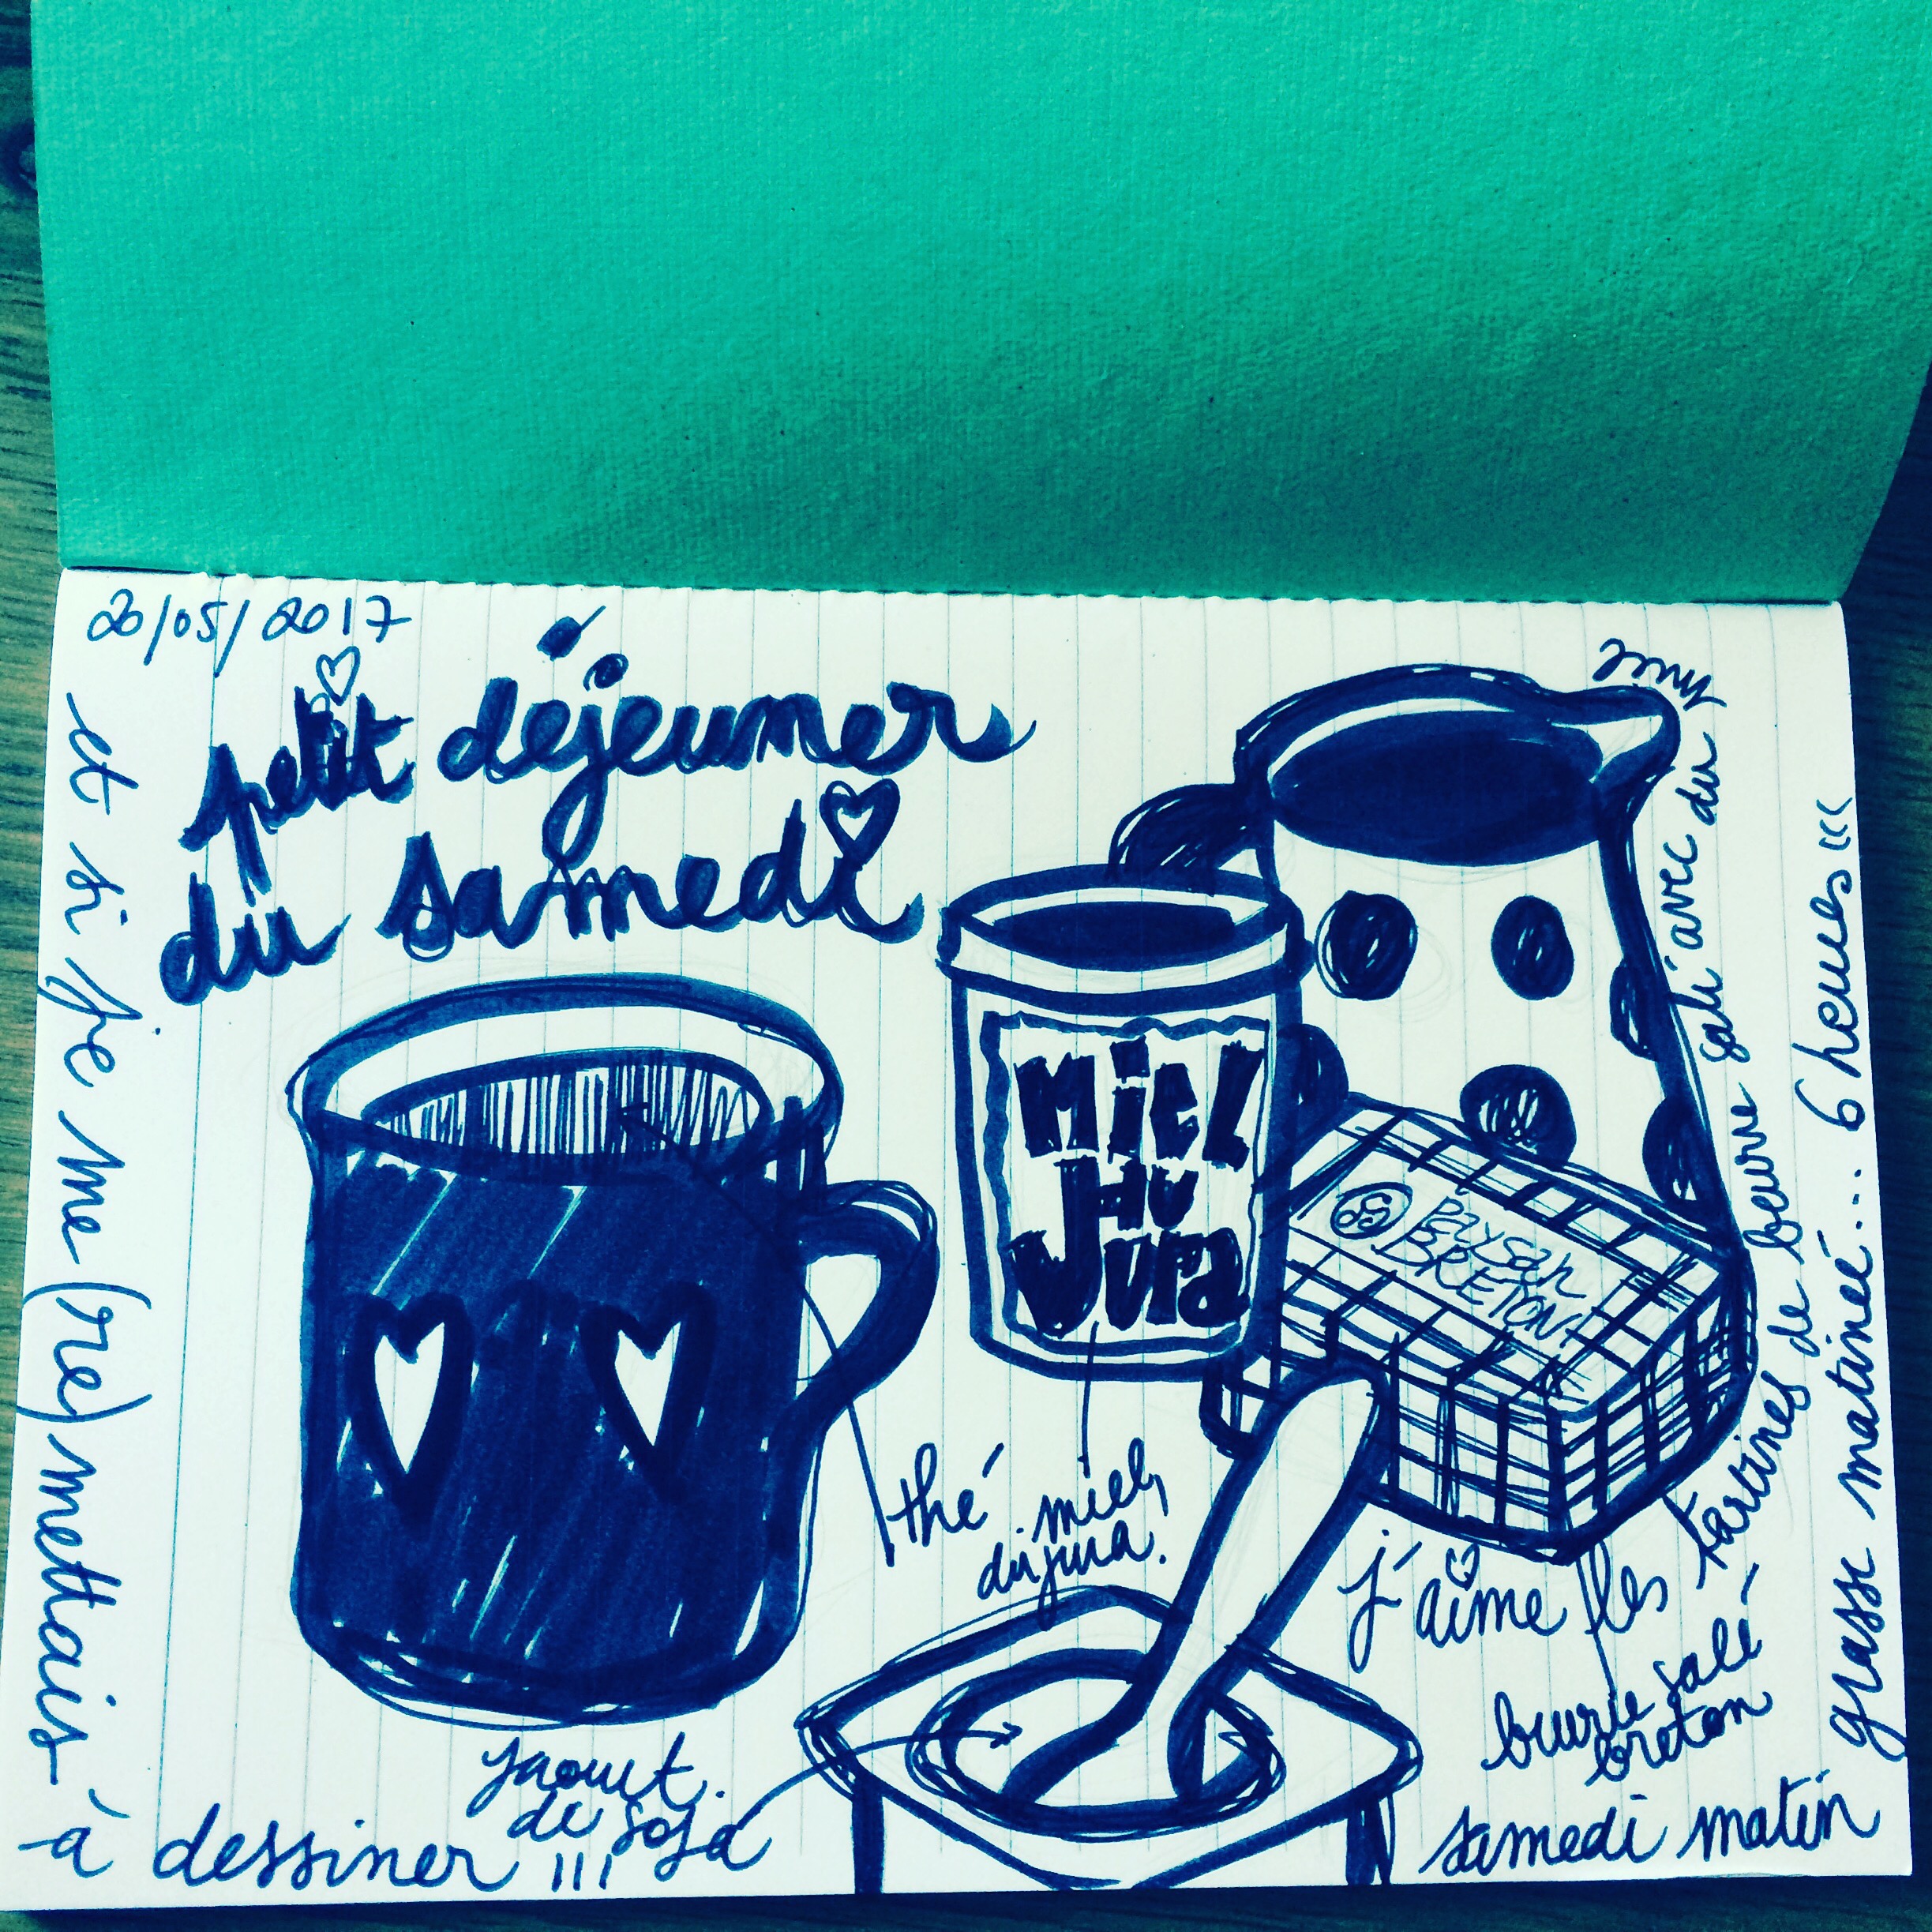 20/05/2017
petit déjeuner
du samedi
et si je me (re) mettais
à dessiner !!!
Miel
du
Jura
Paysan
BRETON
thé
miel
du jura.
yaourt
de soja
j'aime les tartines de beurre salé avec du
beurre salé
breton
samedi matin
grasse matinée... 6 heures